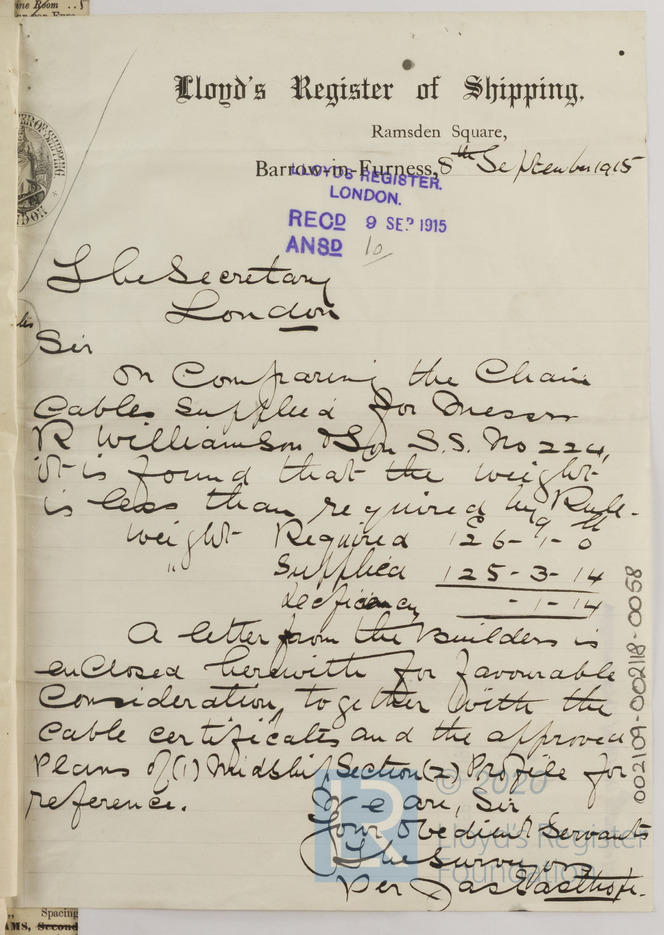 Lloyd's Register of Shipping.
Ramsden Square,
Barrow-in-Furness, 8th September 1915
LLOYD'S REGISTER.
LONDON.
RECD 9 SEP 1915
ANSD 10
The Secretary
London
Sir
On Comparing the Chain
Cables supplied for Messrs
R Williamson & Son S.S. No 224,
it is found that the weight
is less than required by Rule-
C q lb
weight Required 126-1-0
" Supplied 125-3-14
Deficiency -1-14
A letter from the Builders is
enclosed herewith for favourable
Consideration, together with the
Cable certificates and the approved
Plans of (1) Midship Section (2) Profile for
reference.
We are, Sir
Your Obedient Servants
The Surveyors
Per Jas
002109-002118-0058
© 2020
Lloyd's Register
Foundation
LR
Spacing
AMS, Second